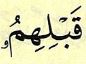 قَبْلِهِمُۥ